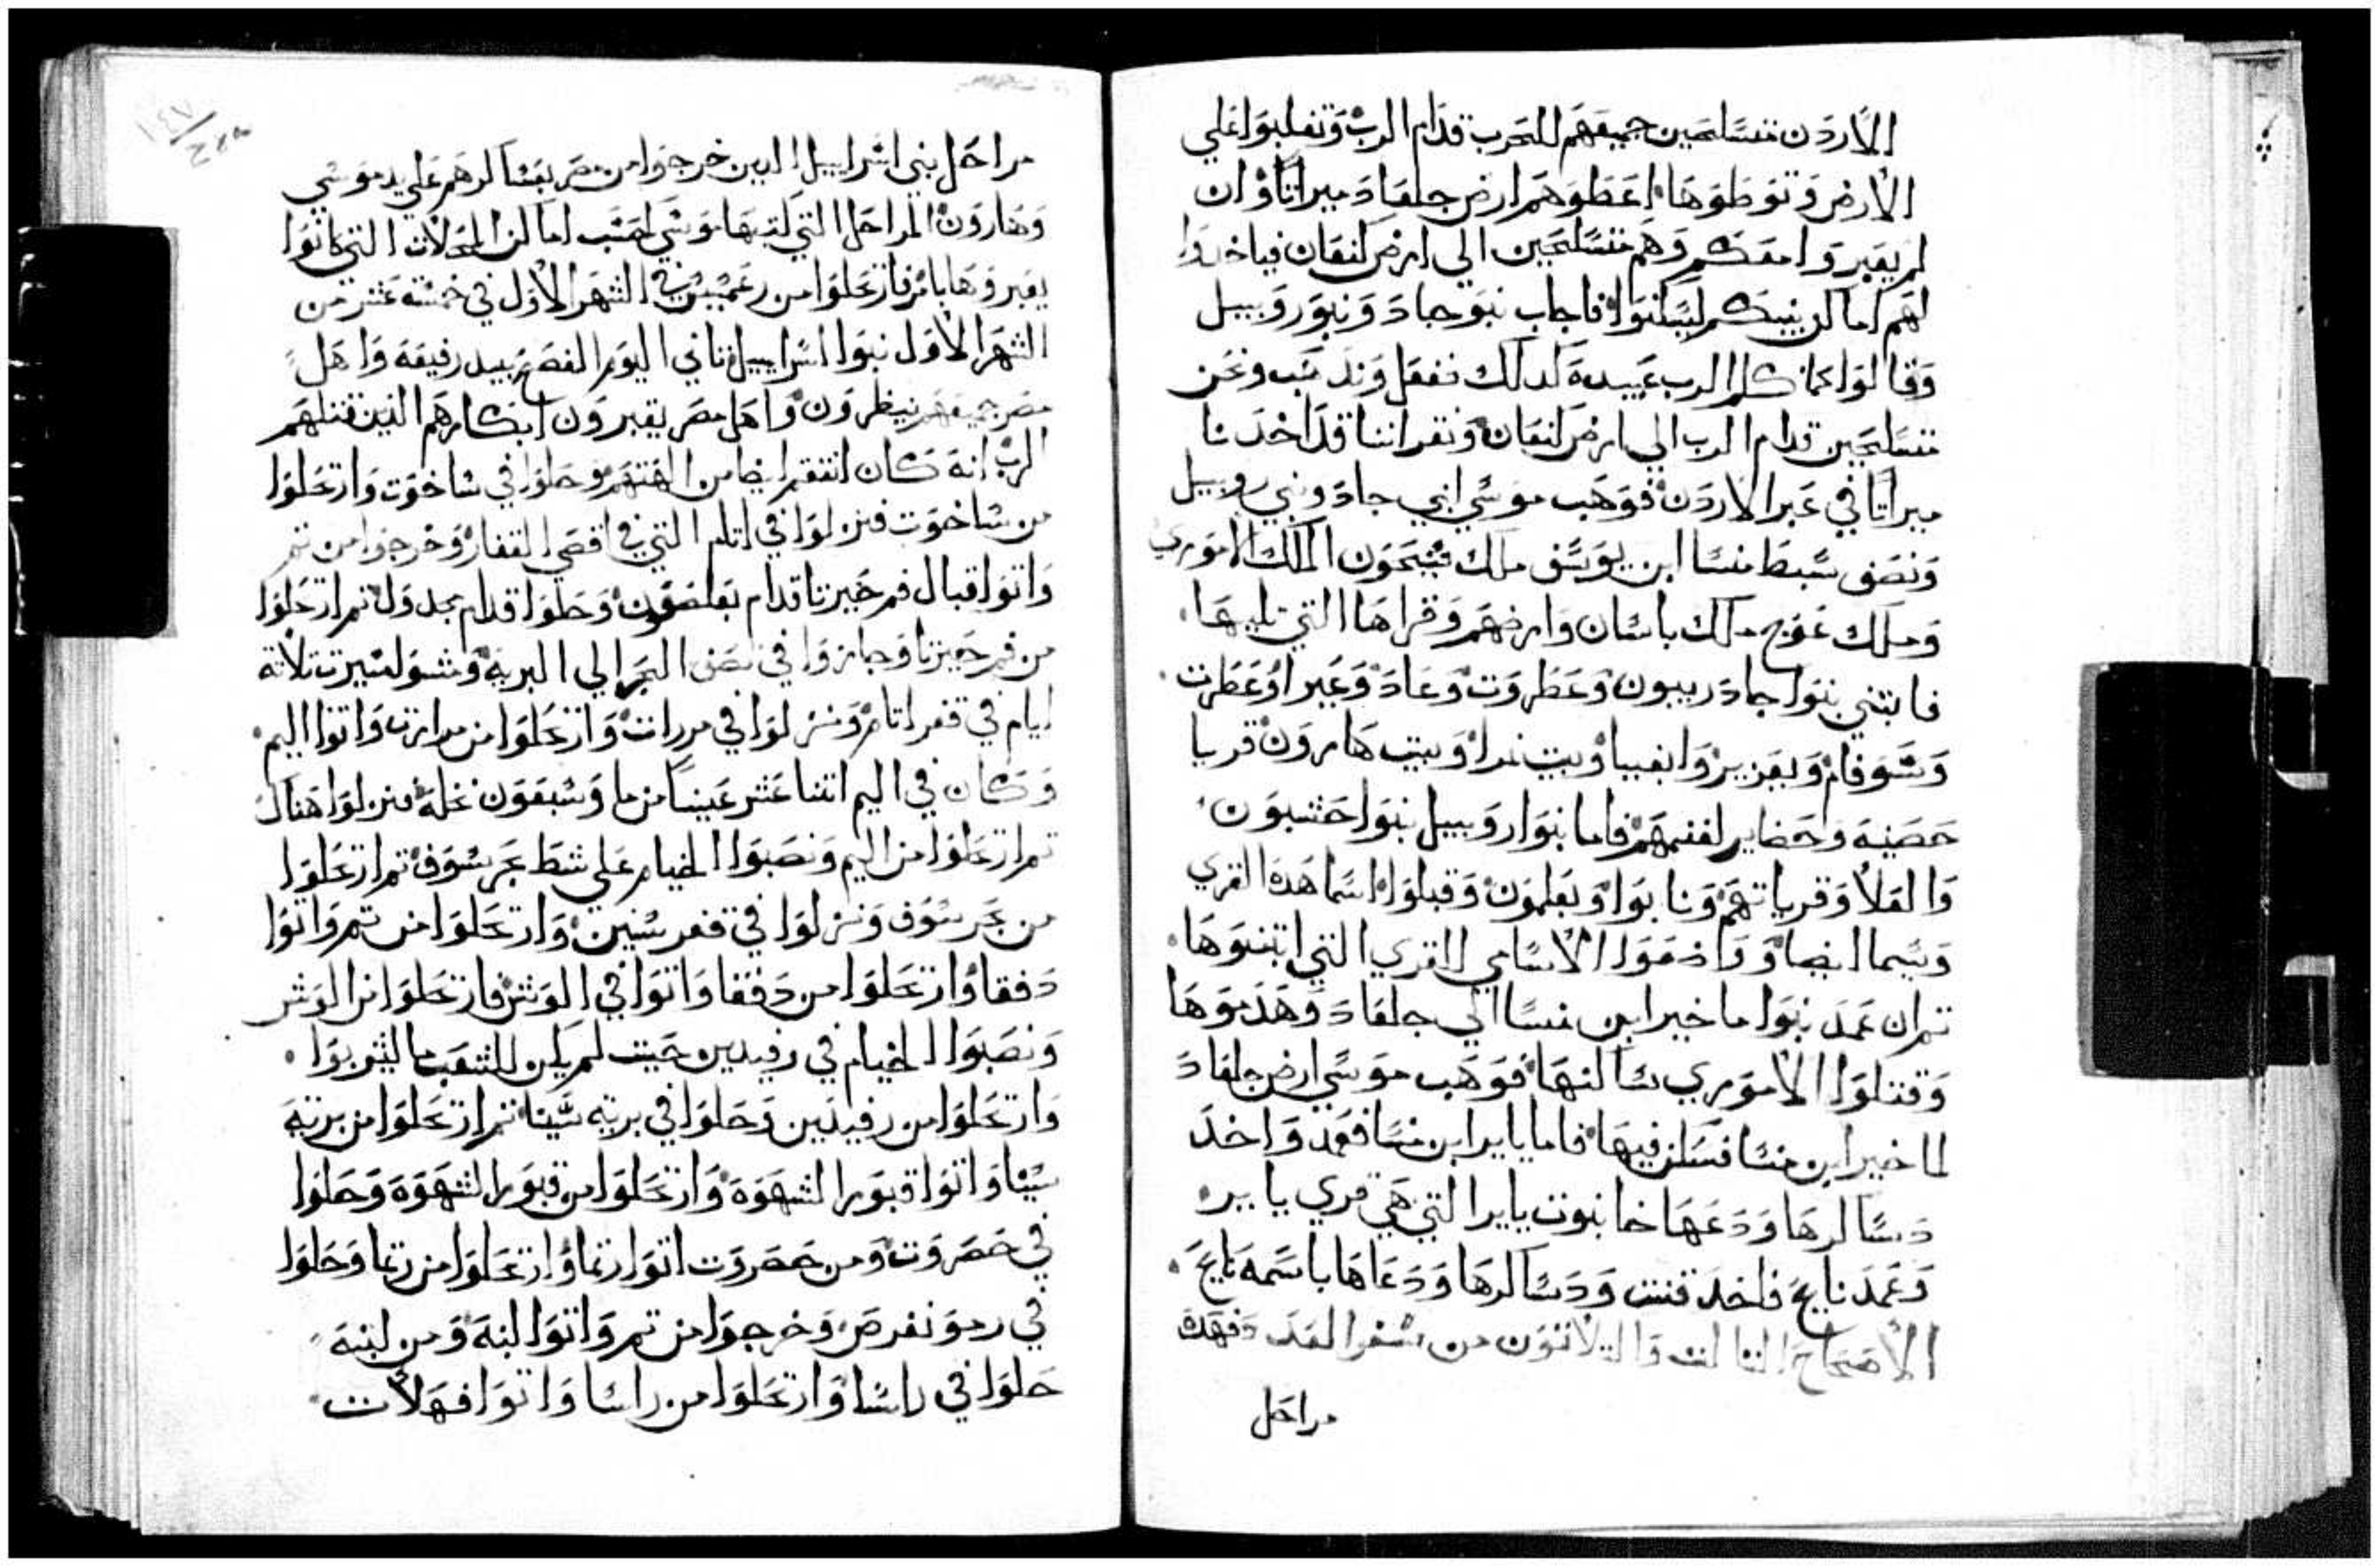 الأردن متسلحين جميعهم للحرب قدام الرب وتغلبوا علي
الأرض وتوطوها اعطوهم ارض جلعاد ميراثا وان
لم يعبروا معكم وهم متسلحين الي ارض كنعان فياخدوا
لهم اماكن بينكم ليسكنوا فاجاب بنو جاد وبنو روبييل
وقالوا كما كلم الرب عبيدة كدلك نفعل وندهب ونحن
متسلحين قدام الرب الي ارض كنعان ونقر اننا قد اخدنا
ميراثا في عبر الاردن فوهب موسي لبني جاد وبني روبييل
ونصف سبط منسا ابن يوسف ملك سيحون الملك الاموري
وملك عوج ملك باسان وارضهم وقراها التي تليها
فابتني بنوا جاد ريبون وعطروت وعاد وعبرا وعطرت
وشوفام ويعزير وابغبيا وبيت نمرا وبيت هارون قريا
حصينة وحضاير لغنمهم فاما بنوا روبييل بنوا حشبون
والعلا وقرياتهم ونابوا وبعلمون وقبلوا اسما هدة القري
وسما ايضا ودعوا الاسامي للقري التي ابتنوها
تم ان عمد بنوا ماخير ابن منسا الي جلعاد وهدموها
وقتلوا الاموري ساكنها فوهب موسي ارض جلعاد
لماخير ابن منسا فسكن فيها فاما يايرا ابن منسا فعمد واخد
دساكرها ودعها خابنوت يايرا التي هي قري يايير
وعمد نابح فاخد قنت ودساكرها ودعاها باسمه نابح
الأصحاح التالت والتلاتون من سفر العدد وفهدة
مراحل
مراحل بني اسراييل الدين خرجوا من مصر بعساكرهم علي يد موسي
وهارون المراحل التي كتبها موسي لحسب اماكن المحلات التي كانوا
يعبروها بامر فارتحلوا من رعمسيس في الشهر الأول في خمسة عشر من
الشهر الأول بنوا اسراييل تاني اليوم الفصح بيد رفيعة واهل
مصر جميعهم ينظرون واهل مصر يقبرون ابكارهم الذين قتلهم
الرب انه كان انتقم ايضا من الهتهم وحلوا في ساخوت وارتحلوا
من ساخوت فنزلوا في اتام التي في اقصي القفار وخرجوا من تم
واتوا قبال فم حيرتا قدام بعلصفون وحلوا قدام مجدول تم ارتحلوا
من فم حيرتا وجازوا في نصف البحر الي البرية ومشوا مسيرت تلاتة
ايام في قفر اتام ونزلوا في مررات وارتحلوا من مرارت واتوا اليم
وكان في اليم اتنا عشر عينا من ما وسبعون نخلة فنزلوا هناك
تم ارتحلوا من اليم ونصبوا الخيام علي شط بحر سوف تم ارتحلوا
من بحر سوف ونزلوا في قفر سنين وارتحلوا من تم واتوا
دفقا وارتحلوا من دفقا واتوا في الوتس فارتحلوا من الوتس
ونصبوا الخيام في رفيدين حيت لم يكن للشعب ما ليشربوا
وارتحلوا من رفيدين وحلوا في برية سينا تم ارتحلوا من برية
سينا واتوا قبور الشهوة وارتحلوا من قبور الشهوة وحلوا
في حصروت ومن حصروت اتوا رتما وارتحلوا من رتما وحلوا
في رمو نفرص وخرجوا من تم واتوا لبنة ومن لبنة
حلوا في راسا وارتحلوا من راسا واتوا فهلات